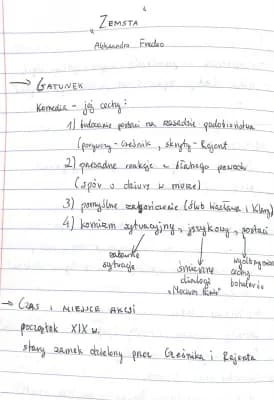 "ZEMSTA
Aleksandra Fredro
→ GATUNEK
Komedia - jej cechy:
1) budowanie postaci na zasadzie podobieństwa
(porywczy - Cześnik, skryty - Rejent
2) przesadne reakcje z błahego powodu
(spór o dziurę w murze)
3) pomyślne zakończenie (ślub Wacława i Klary)
4) komizm sytuacyjny, językowy, postaci
zabawne sytuacje
śmieszne dialogi
"Mocium Panie"
cechy bohaterów
→ CZAS I MIEJSCE AKCJI
początek XIX w.
stary zamek dzielony przez Cześnika i Rejenta